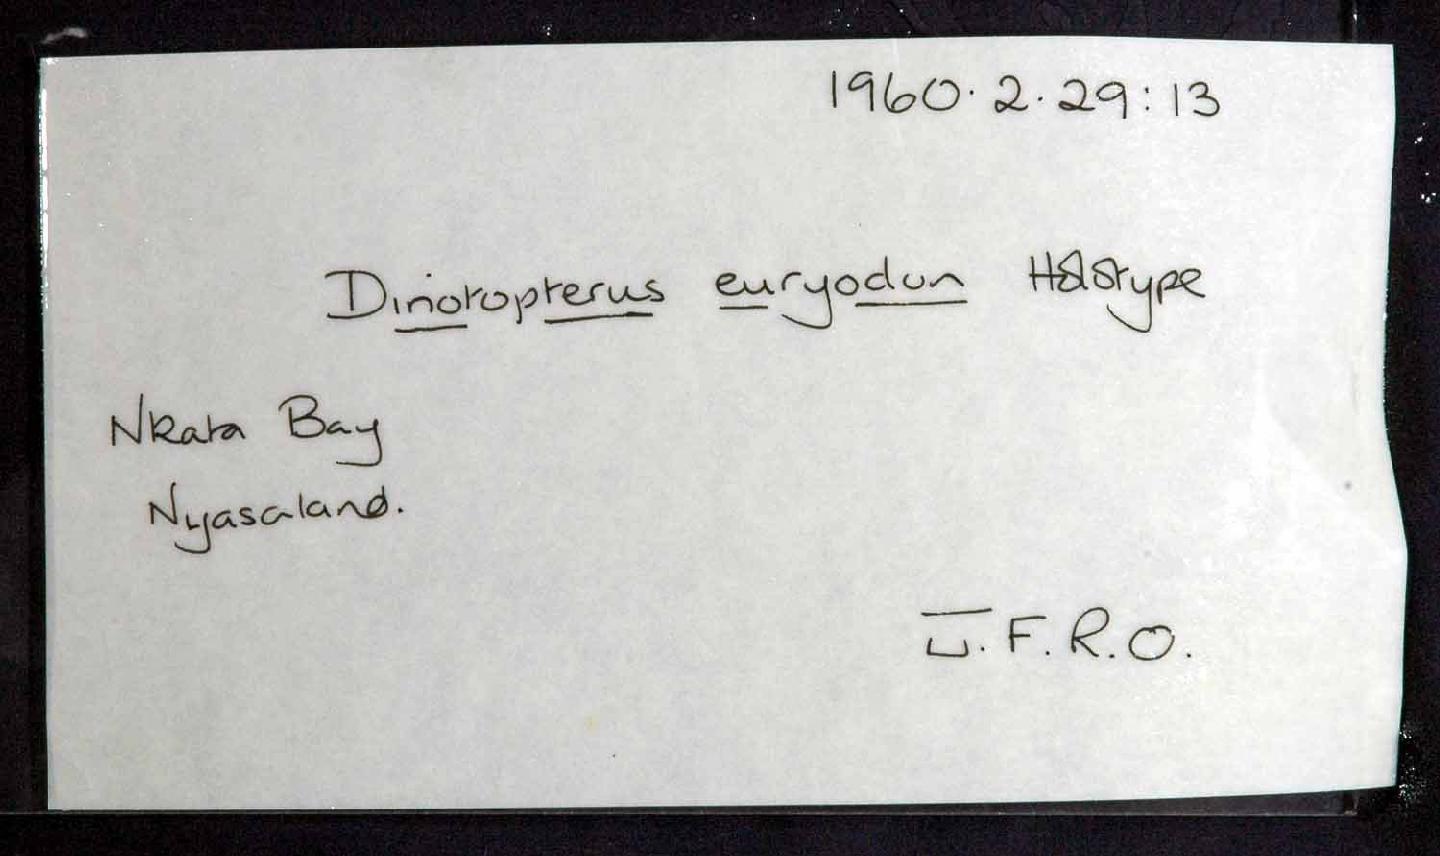 1960.2.29:13
Dinotopterus euryodon Holotype
Nkata Bay
Nyasaland.
J.F.R.O.